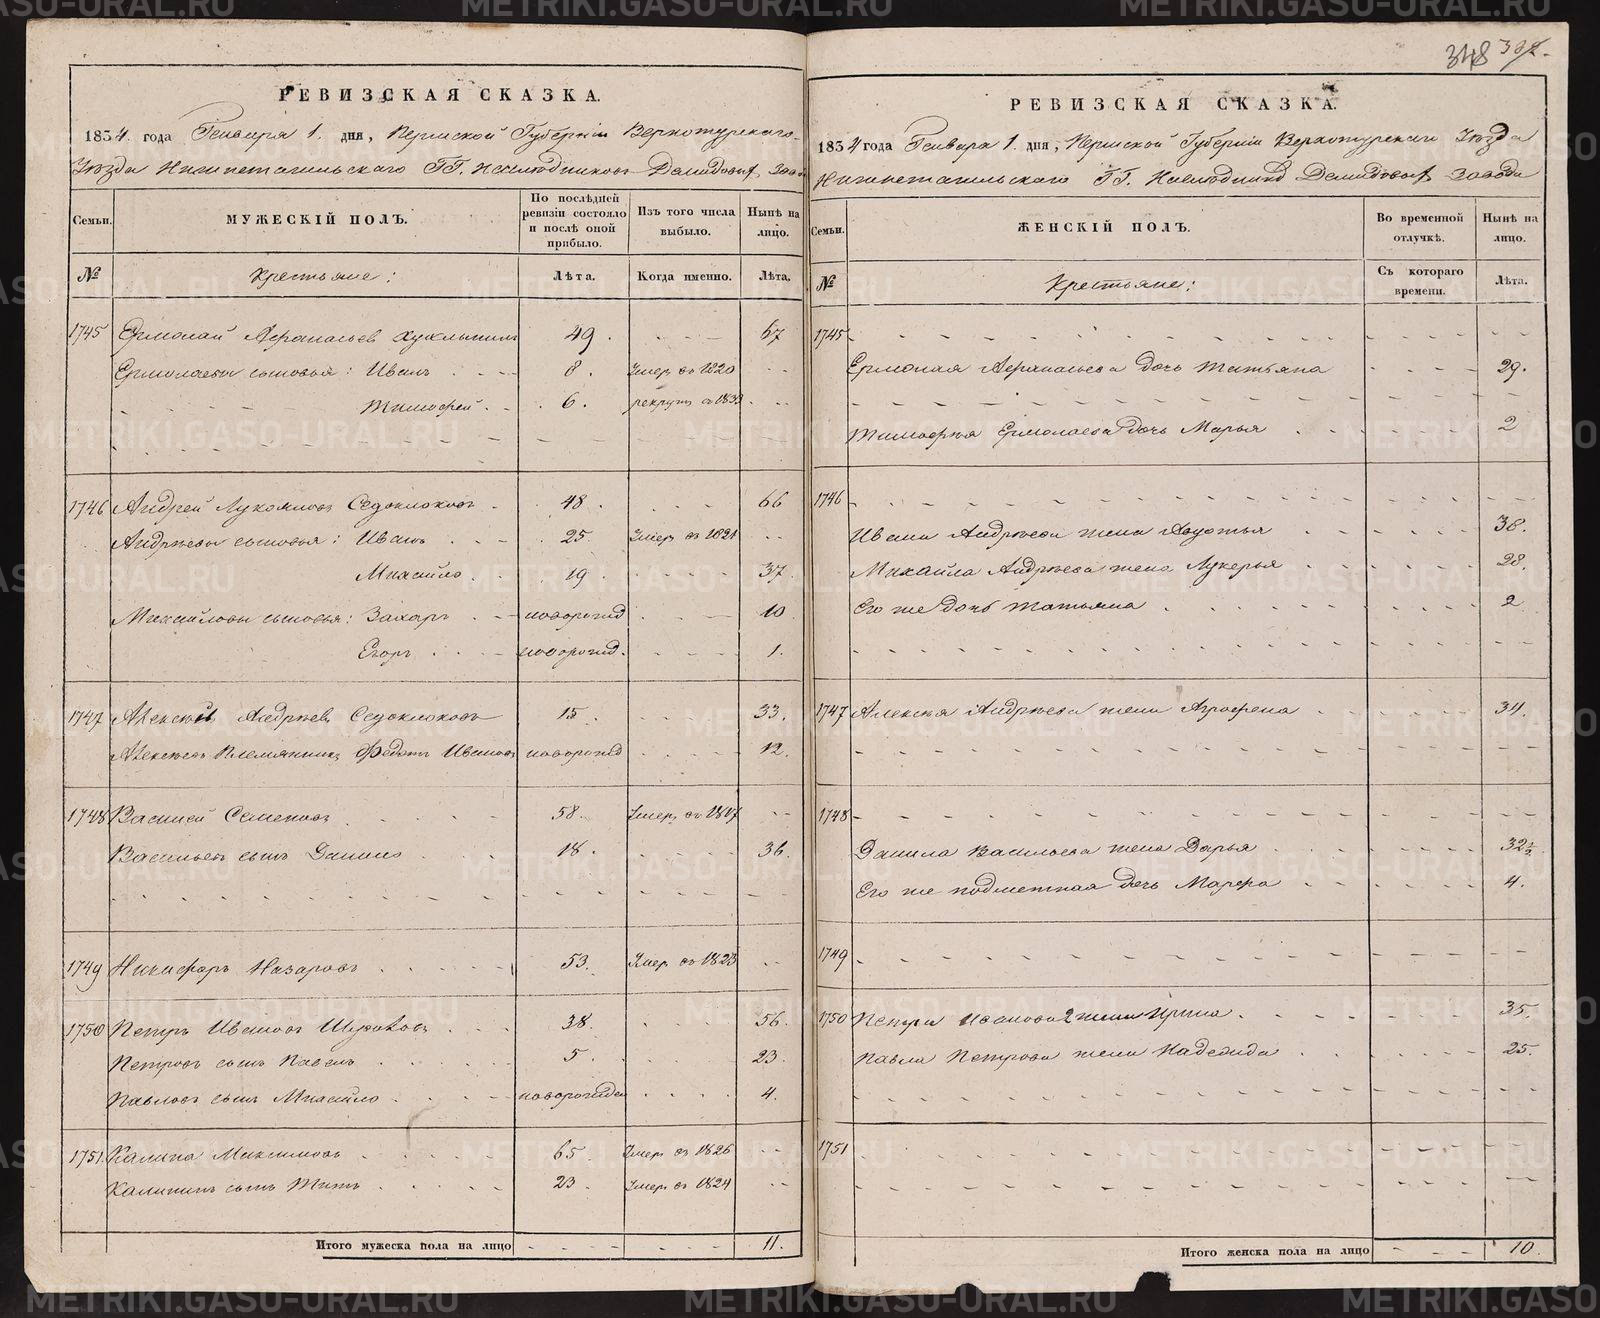 348
РЕВИЗСКАЯ СКАЗКА.
1834. года Генваря 1. дня, Пермской Губерніи Верхотурскаго
Уѣзда Нижнетагильскаго ГГ. Наслѣдниковъ Демидовыхъ Заво
Семьи.
МУЖЕСКІЙ ПОЛЪ.
По послѣдней ревизіи состояло и послѣ оной прибыло.
Изъ того числа выбыло.
Нынѣ на лицо.
№
Крестьяне:
Лѣта.
Когда именно.
Лѣта.
1745 Ермолай Афанасьев 49. 67
Ермолаевы сыновья: Иванъ 8. Умер. въ 1820
Тимофей 6. рекрут. въ 1833
1746 Андрей Седоклоковъ 48. 66
Андрѣевы сыновья: Иванъ 25. Умер. въ 1821
Михайло 19. 37.
Михайловы сыновья: Захаръ новорожд 10
Егоръ новорожд. 1.
1747 Алексѣй Андрѣевъ Седоклоковъ 15. 33.
Алексѣевъ Племянникъ Федотъ Ивановъ новорожд 12.
1748 Василей Семеновъ 58. Умер. въ 1817
Васильевъ сынъ Данило 18. 36.
1749 Никифоръ Назаровъ 53. Умер. въ 1823
1750 Петръ Ивановъ 38. 56.
Петровъ сынъ Павелъ 5. 23.
Павловъ сынъ Михайло новорожден 4.
1751. Калина Максимовъ 65. Умер. въ 1826
Калининъ сынъ Титъ 23. Умер. въ 1824
Итого мужеска пола на лицо 11.
РЕВИЗСКАЯ СКАЗКА.
1834 года Генваря 1. дня, Пермской Губерніи Верхотурскаго Уѣзда
Нижнетагильскаго ГГ. Наслѣдников Демидовыхъ Завода
Семьи.
ЖЕНСКІЙ ПОЛЪ.
Во временной отлучкѣ.
Нынѣ на лицо.
№
Крестьяне:
Съ котораго времени.
Лѣта.
1745
Ермолая Афанасьева дочь Татьяна 29.
Тимофѣя Ермолаева дочь Марья 2
1746
Ивана Андрѣева жена Авдотья 38.
Михайла Андрѣева жена Лукерья 28.
Его же дочь Татьяна 2
1747 Алексѣя Андрѣева жена Аграфена 34.
1748
Данила Васильева жена Дарья 32½
Его же подметная дочь Марфа 4.
1749
1750 Петра Иванова 2 жена Ирина 35.
Павла Петрова жена Надежда 25.
1751
Итого женска пола на лицо 10.
METRIKI.GASO-URAL.RU